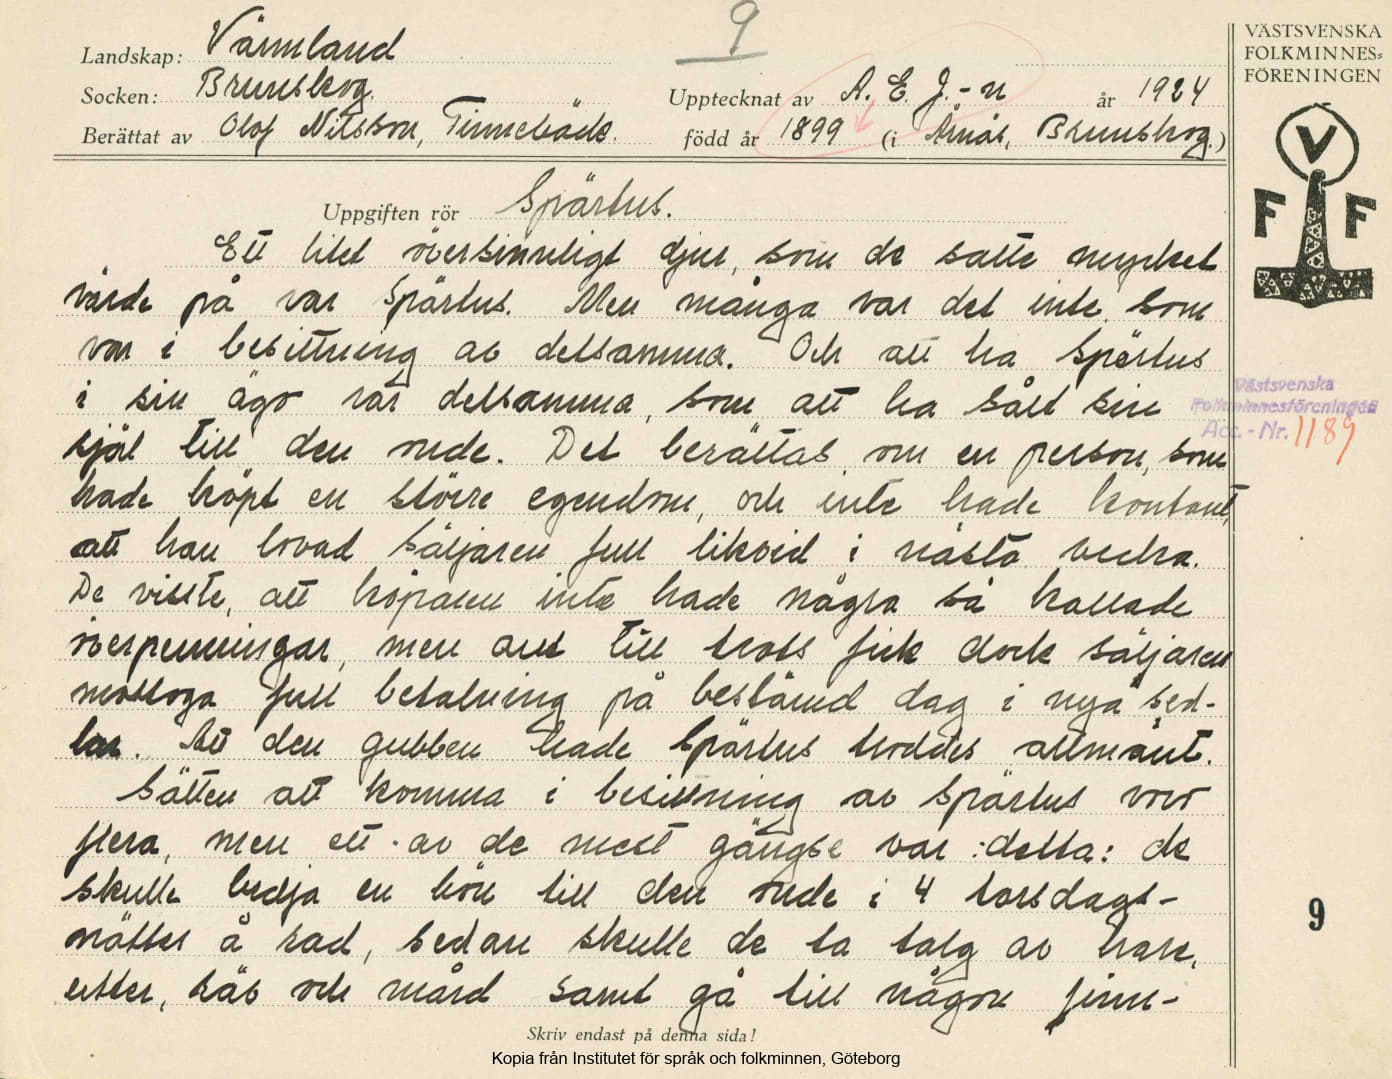 9
Landskap: Värmland
Socken: Brunskog.
Upptecknat av A. E. J.-n år 1924
Berättat av Olof Nilsson, Tinnebäck. född år 1899 (i Årnäs, Brunskog.)
Uppgiften rör Spärtus.
Ett litet översinnligt djur, som de satte mycket
värde på var Spärtus. Men många var det inte, som
var i besittning av detsamma. Och att ha Spärtus
i sin ägo var detsamma, som att ha sålt sin
själ till den onde. Det berättas om en person, som
hade köpt en större egendom, och inte hade kontant,
att han lovad säljaren full likvid i nästa vecka.
De visste, att köparen inte hade några så kallade
överpenningar, men allt till trots fick dock säljaren
mottaga full betalning på bestämd dag i nya sed-
lar. Att den gubben hade Spärtus troddes allmänt.
Sätten att komma i besittning av Spärtus voro
flera, men ett av de mest gängse var :detta: de
skulle bedja en bön till den onde i 4 torsdags-
nätter å rad, sedan skulle de ta talg av hare,
utter, räv och mård samt gå till någon finn-
Skriv endast på denna sida!
Kopia från Institutet för språk och folkminnen, Göteborg
VÄSTSVENSKA
FOLKMINNES-
FÖRENINGEN
V
F F
Västsvenska
Folkminnesföreningen
Acc.-Nr. 1189
9